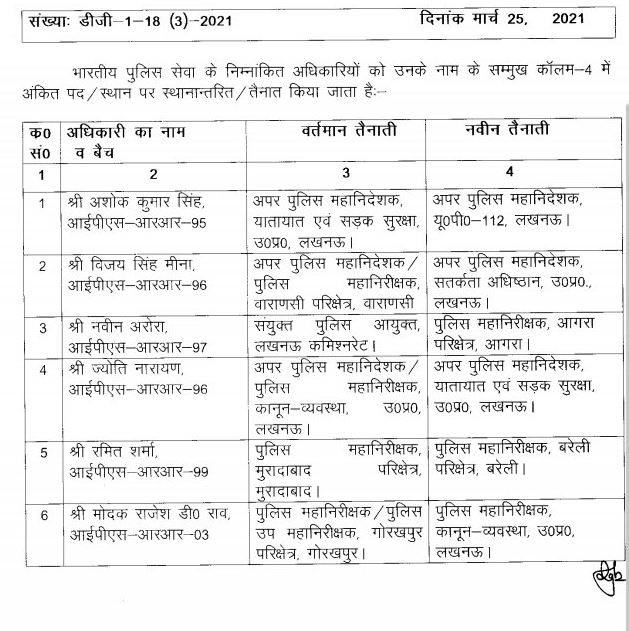 संख्याः डीजी–1–18 (3)–2021 दिनांक मार्च 25, 2021
भारतीय पुलिस सेवा के निम्नांकित अधिकारियों को उनके नाम के सम्मुख कॉलम–4 में
अंकित पद/स्थान पर स्थानान्तरित/तैनात किया जाता हैः–
क0 अधिकारी का नाम वर्तमान तैनाती नवीन तैनाती
सं0 व बैच
1 2 3 4
1 श्री अशोक कुमार सिंह, अपर पुलिस महानिदेशक, अपर पुलिस महानिदेशक,
आईपीएस–आरआर–95 यातायात एवं सड़क सुरक्षा, यू0पी0–112, लखनऊ।
उ0प्र0, लखनऊ।
2 श्री विजय सिंह मीना, अपर पुलिस महानिदेशक/ अपर पुलिस महानिदेशक,
आईपीएस–आरआर–96 पुलिस महानिरीक्षक, सतर्कता अधिष्ठान, उ0प्र0.,
वाराणसी परिक्षेत्र, वाराणसी लखनऊ।
3 श्री नवीन अरोरा, संयुक्त पुलिस आयुक्त, पुलिस महानिरीक्षक, आगरा
आईपीएस–आरआर–97 लखनऊ कमिश्नरेट। परिक्षेत्र, आगरा।
4 श्री ज्योति नारायण, अपर पुलिस महानिदेशक/ अपर पुलिस महानिदेशक,
आईपीएस–आरआर–96 पुलिस महानिरीक्षक, यातायात एवं सड़क सुरक्षा,
कानून–व्यवस्था, उ0प्र0, उ0प्र0, लखनऊ।
लखनऊ।
5 श्री रमित शर्मा, पुलिस महानिरीक्षक, पुलिस महानिरीक्षक, बरेली
आईपीएस–आरआर–99 मुरादाबाद परिक्षेत्र, परिक्षेत्र, बरेली।
मुरादाबाद।
6 श्री मोदक राजेश डी0 राव, पुलिस महानिरीक्षक/पुलिस पुलिस महानिरीक्षक,
आईपीएस–आरआर–03 उप महानिरीक्षक, गोरखपुर कानून–व्यवस्था, उ0प्र0,
परिक्षेत्र, गोरखपुर। लखनऊ।